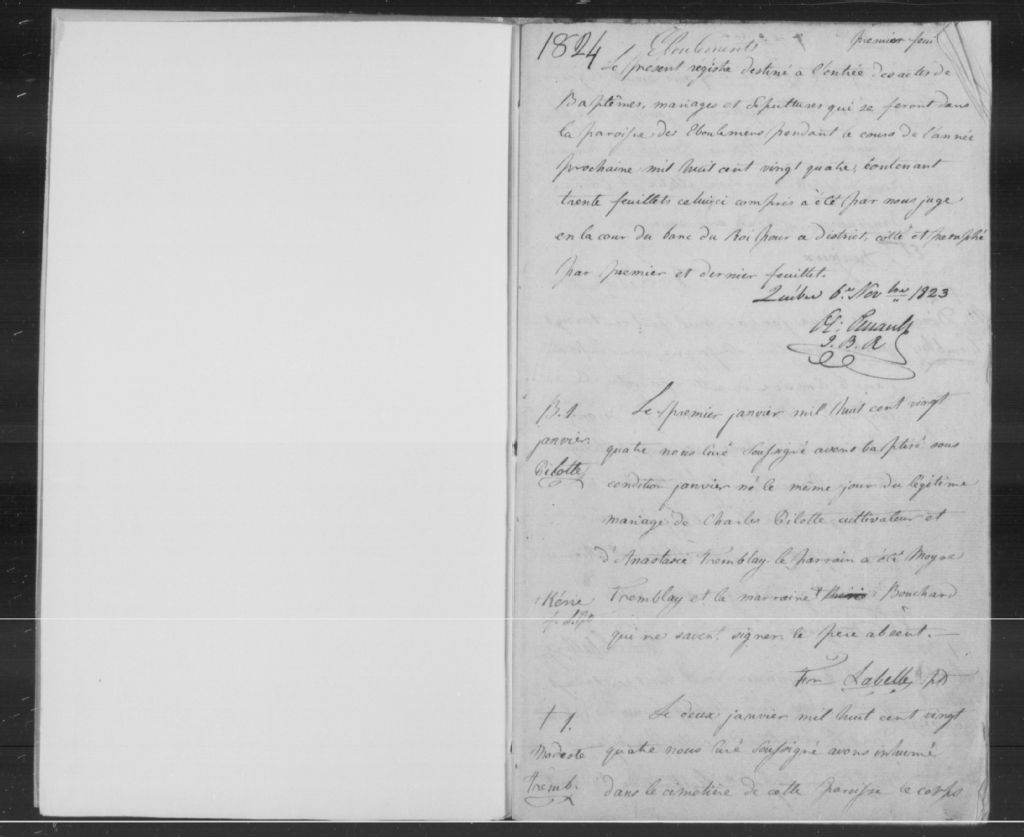 1824 Eboulements premier feuil
Le present registre destiné a l'entrée des actes de
Baptêmes, mariages et Sepultures qui se feront dans
la paroisse des Eboulemens pendant le cours de l'année
prochaine mil huit cent vingt quatre, contenant
trente feuillets celui ci compris a été par nous juge
en la cour du banc du Roi pour ce district, cotté et paraphé
par premier et dernier feuillet.
Québec 6. Novbre 1823
Ol: Perrault
J. B. R
B. 1.
janvier
Pilotte
Le premier janvier mil huit cent vingt
quatre nous curé soussigné avons baptisé sous
condition janvier né le même jour du légitime
mariage de Charles Pilotte cultivateur et
d'Anastasie Tremblay. le parrain a été Moyse
Tremblay et la marraine Bouchard
qui ne savent signer. le père absent.
Frn Labelle ptr
+ 1.
Modeste
Tremb.
Le deux janvier mil huit cent vingt
quatre nous curé soussigné avons inhumé
dans le cimetière de cette paroisse le corps